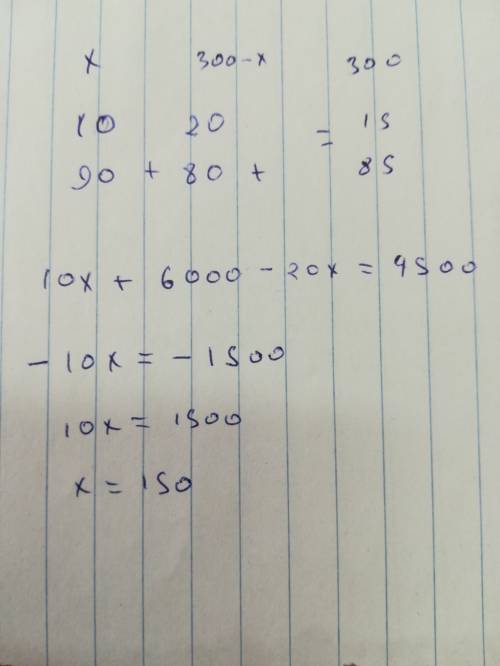 x 300-x 300
10 20 = 15
90 + 80 + 85
10x + 6000 - 20x = 4500
- 10x = - 1500
10x = 1500
x = 150